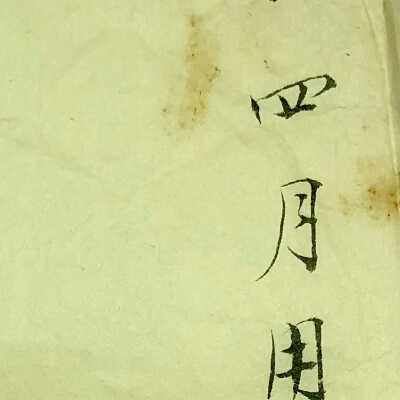 四月用